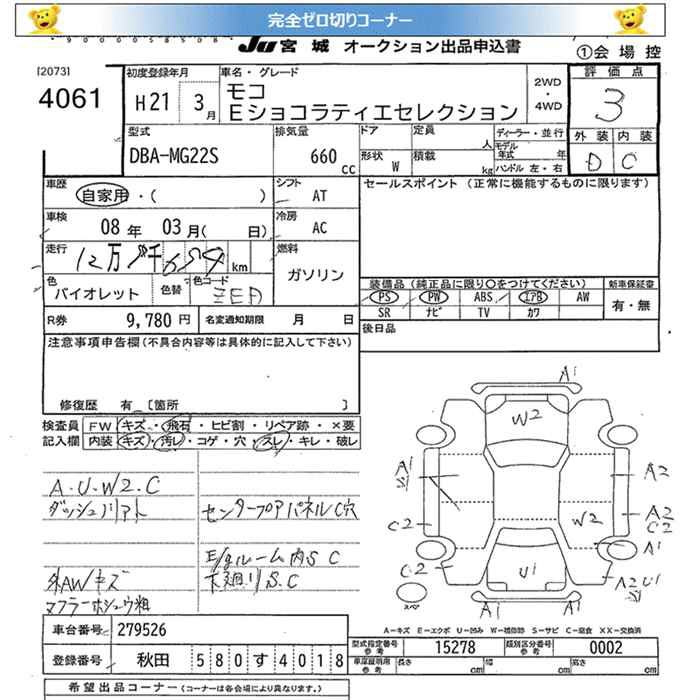 完全ゼロ切りコーナー
JU 宮城 オークション出品申込書
①会場控
[2073]
4061
初度登録年月
H21 3月
車名・グレード
モコ
Eショコラティエセレクション
2WD・4WD
評価点
3
外装 内装
D C
型式
DBA-MG22S
排気量
660 cc
ドア
定員 人
形状 W
積載 kg
ディーラー・並行
モデル年式 年
ハンドル 左・右
車歴
自家用・( )
シフト
AT
セールスポイント (正常に機能するものに限ります)
車検
08年 03月( 日)
冷房
AC
走行
km
燃料
ガソリン
色
バイオレット
色替
色コード
装備品(純正品に限り○をつけてください)
PS PW ABS エアB AW
SR ナビ TV カワ
新車保証書
有・無
R券
9,780円
名変通知期限 月 日
後日品
注意事項申告欄(不具合内容等は具体的に記入して下さい)
修復歴 有 [箇所 ]
検査員記入欄
FW キズ・飛石・ヒビ割・リペア跡・×要
内装 キズ・汚レ・コゲ・穴・スレ・キレ・破レ
A・U・W2・C
センタープアパネルC穴
E/gルーム内S C
下廻りS.C
外AW/キズ
A1
W2
A1
S1
A2
W2
A2
C2
C2
A1
C2
U1
A2 U1
S1
A1
A1
スペ
A-キズ E-エクボ U-凹み W-補修跡 S-サビ C-腐食 XX-交換済
車台番号
279526
登録番号
秋田 580す4018
型式指定番号 参考
15278
類別区分番号 参考
0002
車庫証明用 参考
長さ cm
幅 cm
高さ cm
希望出品コーナー(コーナーは各会場により異なります。)